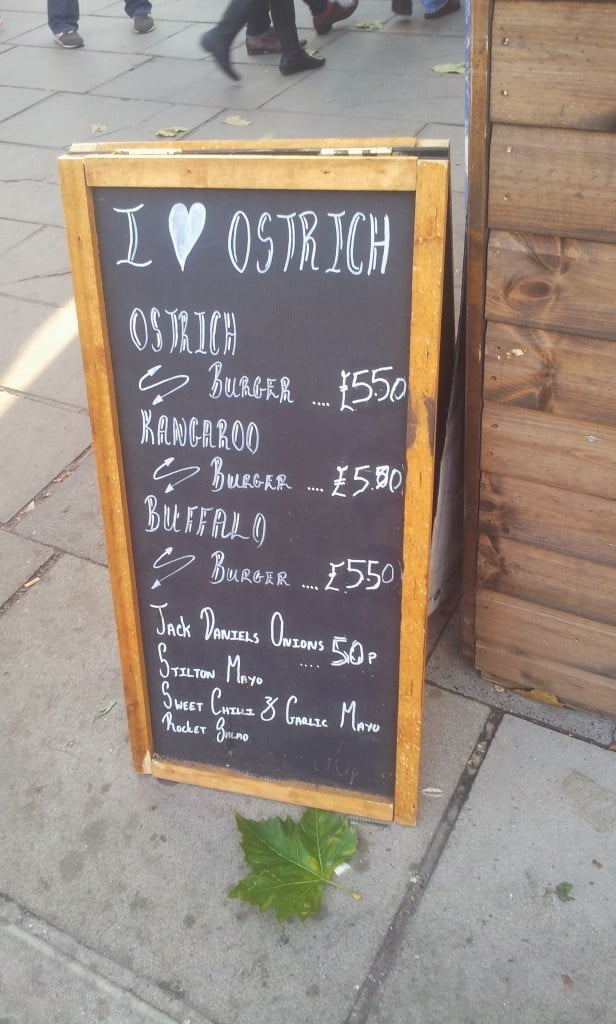 I ♥ OSTRICH
OSTRICH
BURGER .... £550
KANGAROO
BURGER .... £5.50
BUFFALO
BURGER .... £550
JACK DANIELS ONIONS .... 50P
STILTON MAYO
SWEET CHILLI & GARLIC MAYO
ROCKET